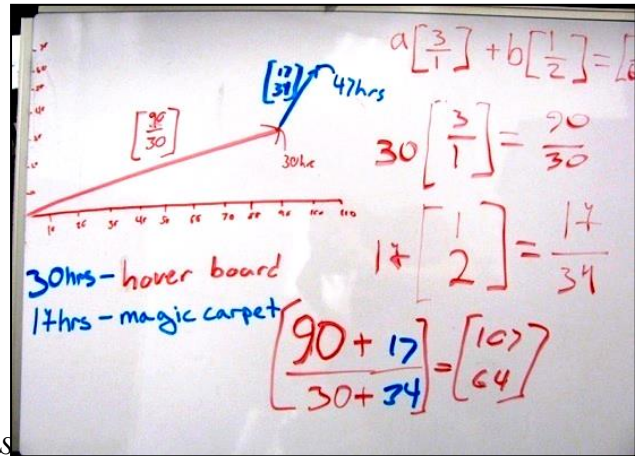 a [3/1] + b [1/2] = [
[17/34] 47hrs
[90/30]
30hrs
30 [3/1] = 90/30
10 20 30 40 50
70 80 90 100
17 [1 2] = 17/34
30hrs - hover board
17hrs - magic carpet
[90 + 17 / 30 + 34] = [107 64]
S